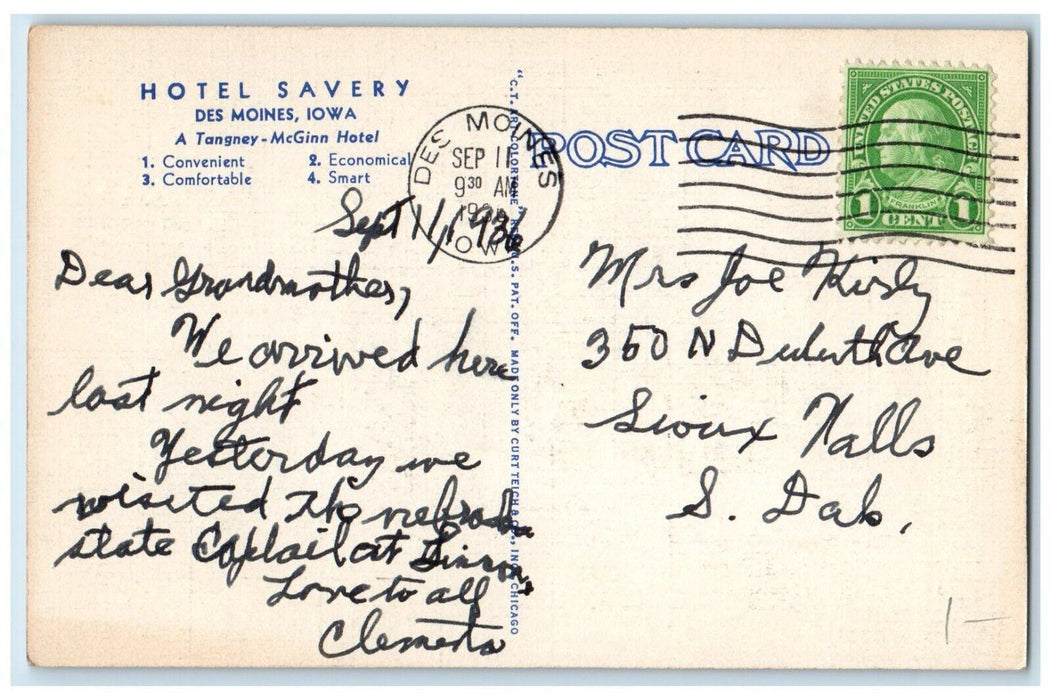 HOTEL SAVERY
DES MOINES, IOWA
A Tangney-McGinn Hotel
1. Convenient 2. Economical
3. Comfortable 4. Smart
POST CARD
DES MOINES
SEP 11
9 30 AM
UNITED STATES POSTAGE
FRANKLIN
1 CENT 1
Sept 11, 1936
Dear Grandmother,
We arrived here
last night
Yesterday we
visited the nebraska
state Capitail at
Love to all
Mrs Joe Kirby
350 N Duluth Ave
Sioux Falls
S. Dak.
"C.T. ART-COLORTONE" REG. U.S. PAT. OFF. MADE ONLY BY CURT TEICH & CO., INC., CHICAGO
1-